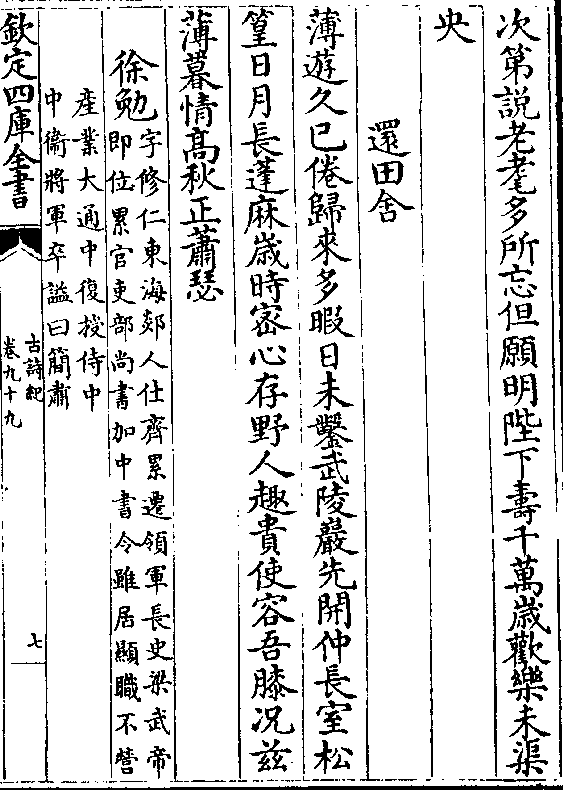 次第説老耄多所忘但願明陛下夀千萬歳歡樂未渠
央
還田舍
薄遊久已倦歸來多暇日未鑿武陵巖先開仲長室松
篁日月長蓬麻歳時宻心存野人趣貴使容吾膝况兹
薄暮情髙秋正蕭瑟
徐勉
字修仁東海郯人仕齊累遷領軍長史梁武帝
即位累官吏部尚書加中書令雖居顯職不營
産業大通中復授侍中
中衞將軍卒諡曰簡肅
欽定四庫全書
古詩紀
卷九十九
七